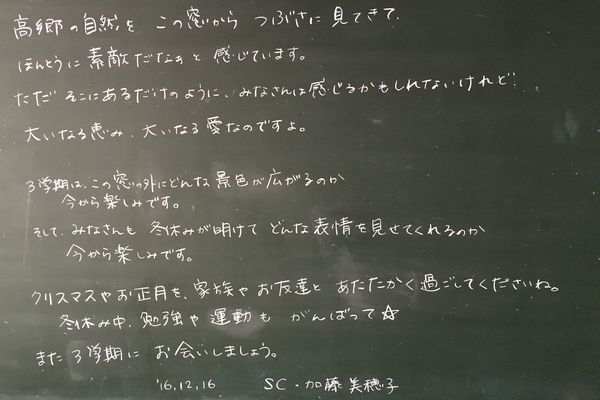 高郷の自然を この窓から つぶさに見てきて、
ほんとうに素敵だなぁと 感じています。
ただ そこにあるだけのように、みなさんは感じるかもしれないけれど…
大いなる恵み、大いなる愛なのですよ。
3学期は、この窓の外にどんな景色が広がるのか
今から楽しみです。
そして、みなさんも 冬休みが明けて どんな表情を見せてくれるのか
今から楽しみです。
クリスマスやお正月を、家族やお友達と あたたかく過ごしてくださいね。
冬休み中、勉強や運動も がんばって☆
また3学期に お会いしましょう。
'16.12.16 SC・加藤美穂子